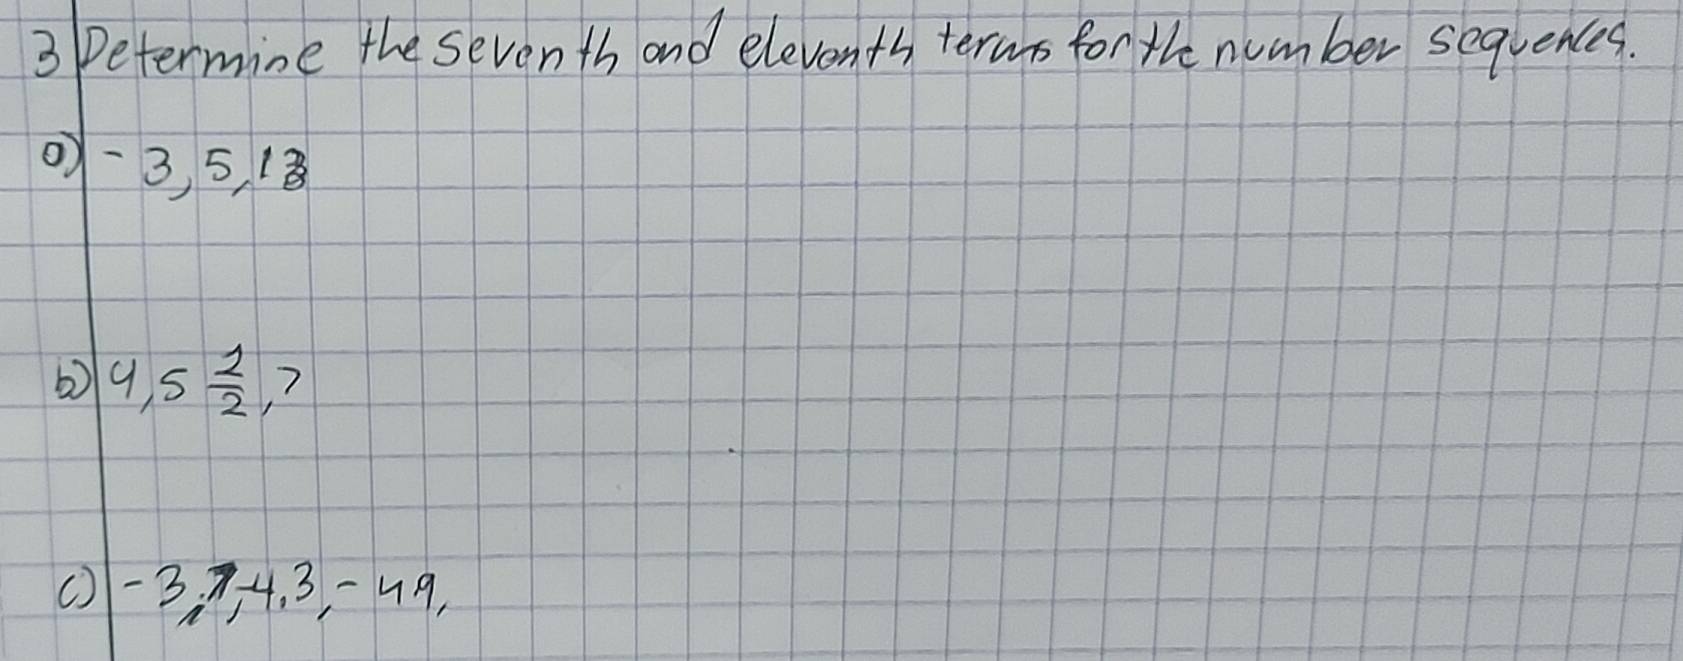 3 Determine the seventh and eleventh terms for the number sequences.
a) -3, 5, 13
b) 4, 5 1/2, 7
c) -3.7, -4.3, -49,